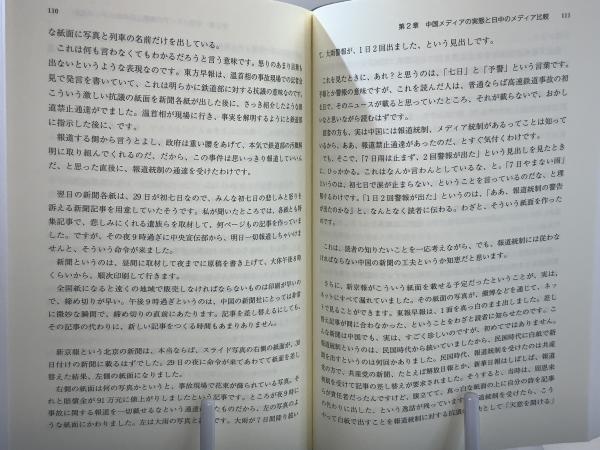 110
な紙面に写真と列車の名前だけを出している。
これは何も言わなくてもわかるだろうと言う意味です。怒りのあまり言葉も
出ないというような表現なのです。東方早報は、温首相の事故現場での記者会
見で発言を書いていて、これは明らかに鉄道部に対する抗議の意味なのです。
こういう激しい抗議の紙面を新聞各紙が出した後に、さっき紹介したような報
道禁止通達がでました。温首相が現場に行き、事実を解明するようにと鉄道部
に指示した後に、です。
報道する側から言うとよし、政府は重い腰をあげて、本気で鉄道部の汚職解
明に取り組んでくれるのだ、だから、この事件は思いっきり報道していいん
だ、と思った直後に、報道統制の通達を受けたわけです。
翌日の新聞各紙は、29日が初七日なので、みんな初七日の悲しみと怒りを
訴える新聞記事を用意していたそうです。私が聞いたところでは、各紙とも特
集記事で、悲しみにくれる遺族らを取材して、何ページもの記事を作っていま
した。ですが、その夜9時過ぎに中央宣伝部から、明日一切報道しちゃいけま
せんと、そういう命令が来ました。
新聞というのは、昼間に取材して夜までに原稿を書き上げて、大体午後8時
くらいから、順次印刷して行きます。
全国紙になると遠くの地域で販売しなければならないものは印刷が早いの
で、締め切りが早い。午後9時過ぎというのは、中国の新聞社にとっては非常
に微妙な瞬間で、締め切りの直前にあたります。記事を差し替えるにしても、
その記事の代わりに、新しい記事をつくる時間もあまりありません。
新京報という北京の新聞は、本当ならば、スライド写真の右側の紙面が、30
日付けの新聞に載るはずでした。29日の夜に命令が来てあわてて紙面を差し
替えた結果、左側の紙面になりました。
右側の紙面は何の写真かというと、事故現場で花束が飾られている写真。そ
れと賠償金が91万元に値上がりしましたという記事です。ところが夜9時に
事故に関する報道を一切載せるなという通達 たものだから、左の写真のよ
うな紙面にかわりました。左は大雨の写真と 大雨が7日間降り続い
第2章 中国メディアの実態と日中のメディア比較 111
て、大雨警報が、1日2回出ました、という見出しです。
これを見たときに、あれ？と思うのは、「七日」と「予警」という言葉です。
予警とか警報の意味ですが、これを読んだ人は、普通ならば高速鉄道事故の初
七日で、そのニュースが載ると思っていたところ、それが載らないで、おかし
いなと思いながら読むはずです。
読者の方も、実は中国には報道統制、メディア統制があるってことは知って
いるから、ああ、報道禁止通達があったのだ、とすぐ気付くわけです。
でも、そこで、「7日雨は止まず、2回警報が出た」という見出しを見たとき
に、ひっかかる。これはなんか言わんとしているな、と。「7日やまない雨」
というのは、初七日で涙が止まらない、ということを言っているのだな、と理
解するわけです。「1日2回警報が出た」というのは、「ああ、報道統制の警告
が出たのかな」と、なんとなく読者に伝わる。わざと、そういう紙面を作った
のです。
これは、読者の知りたいことを一応考えながら、でも、報道統制には従わな
ければならない中国の新聞の工夫というか知恵だと思います。
さらに、新京報がこういう紙面を載せる予定だったということが、実は、
ネットにすべて漏れていました。その紙面の写真が、微博などを通じて、ネッ
トで見ることができます。東報早報は、1面の真っ白のまま出しました。差し
替え記事が間に合わなかった、ということをわざと読者に知らせたのです。こ
んな新聞は中国でも、実は、すごく珍しいのですが、初めてではありません。
報道統制というのは、民国時代から続いていましたから、民国時代に白紙で新
聞を出すというのは何回かありました。民国時代、報道統制を受けたのは共産
党の方で、共産党の新聞、たとえば解放日報とか、新華日報はしばしば、報道
統制を受けて記事の差し替えが要求されました。そうすると、当時は、周恩来
らが責任者だったんですけど、旗立てて、真っ白な紙面の上に自分の詩を記事
の代わりに出した、という逸話が残っています 道統制を受けたら、こう
やって白紙で出すことを報道統制に対する抗議の として「天意を開ける」